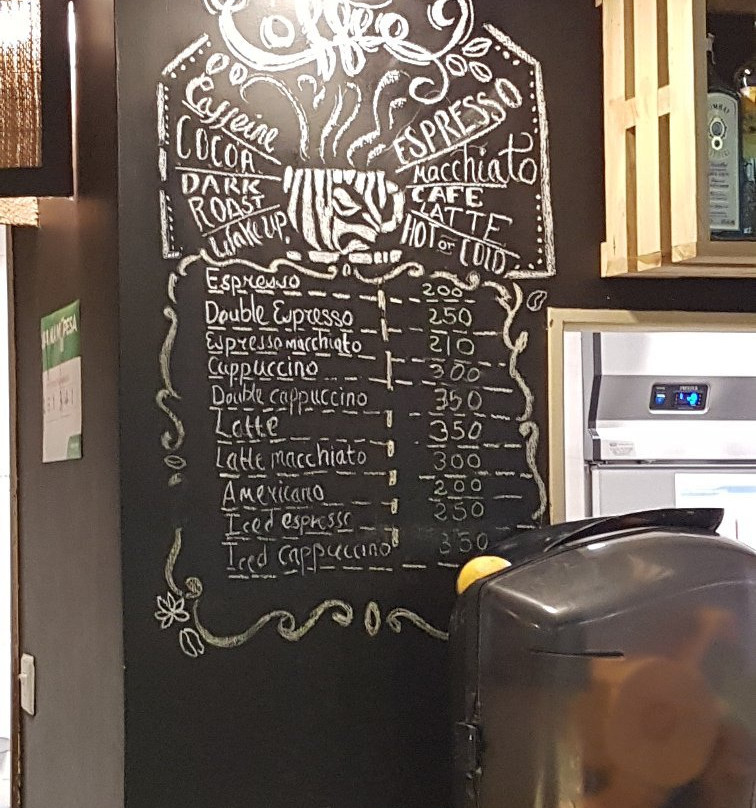 Coffee
Caffeine
COCOA
DARK
ROAST
Wake up.
ESPRESSO
Macchiato
CAFE
LATTE
HOT or COLD
Espresso 200
Double Espresso 250
Espresso macchiato 210
Cappuccino 300
Double cappuccino 350
Latte 350
Latte macchiato 300
Americano 200
Iced espresso 250
Iced cappuccino 350
PESA